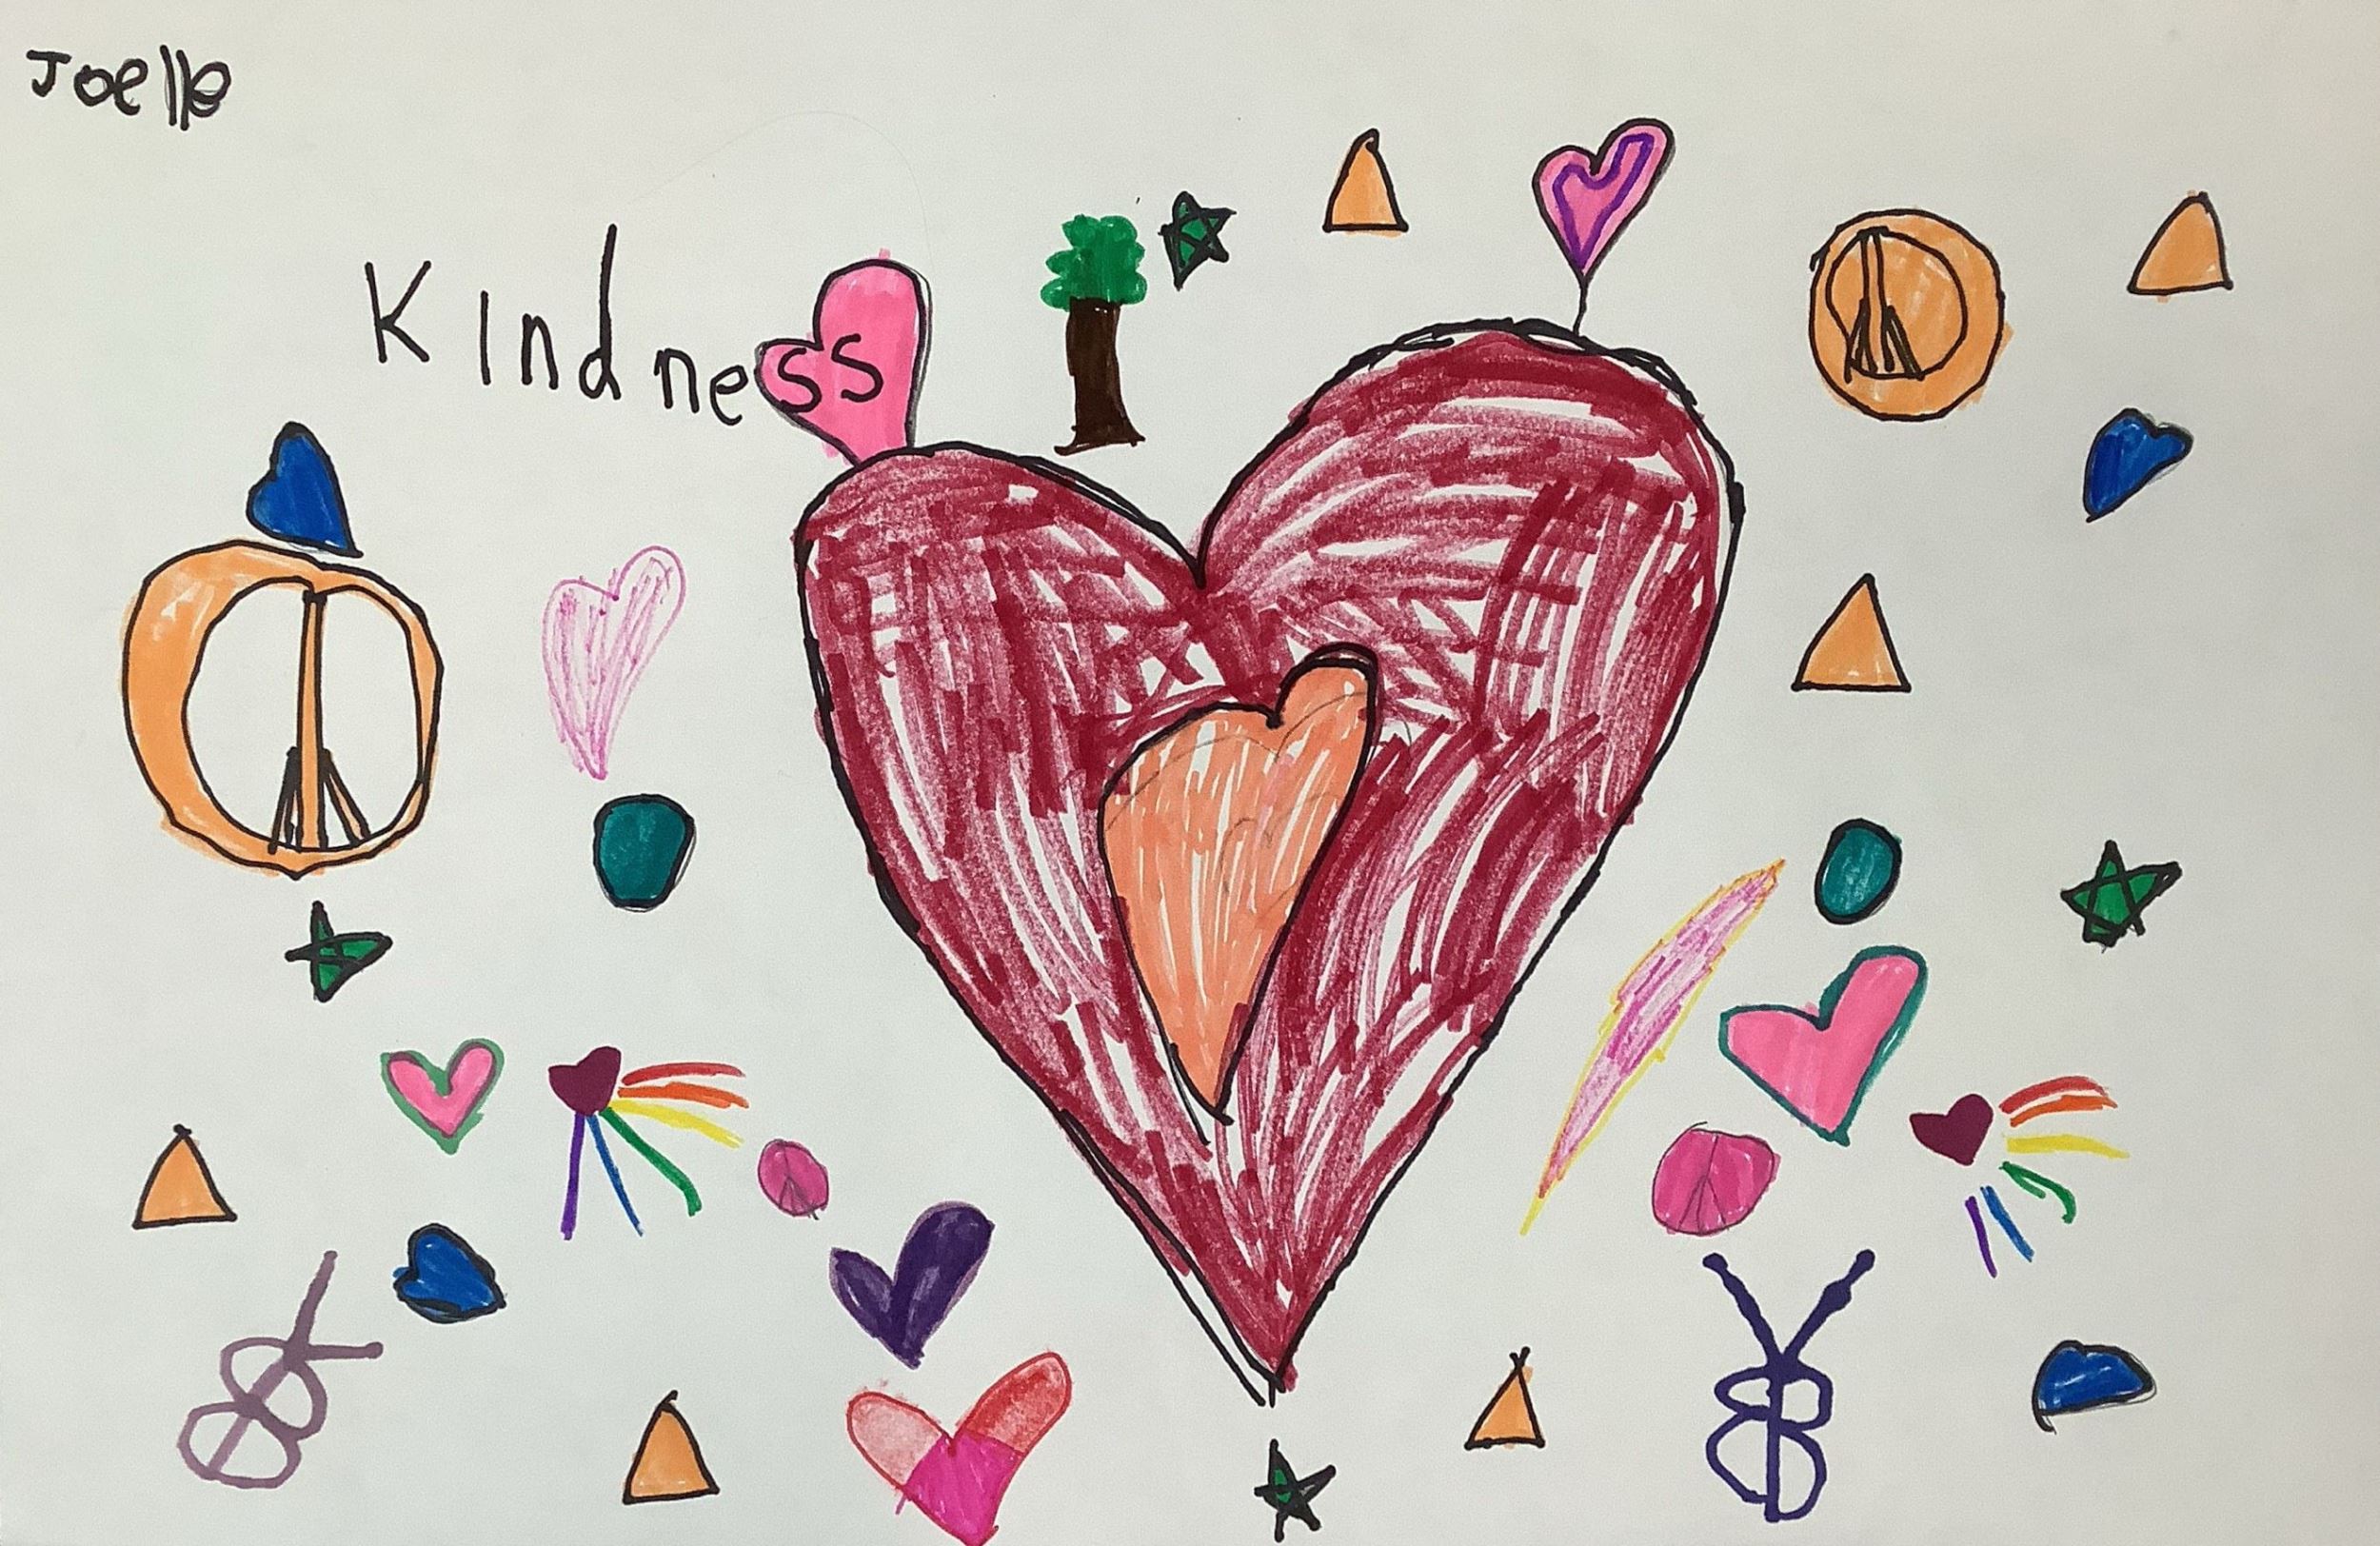 Joelle
Kindness